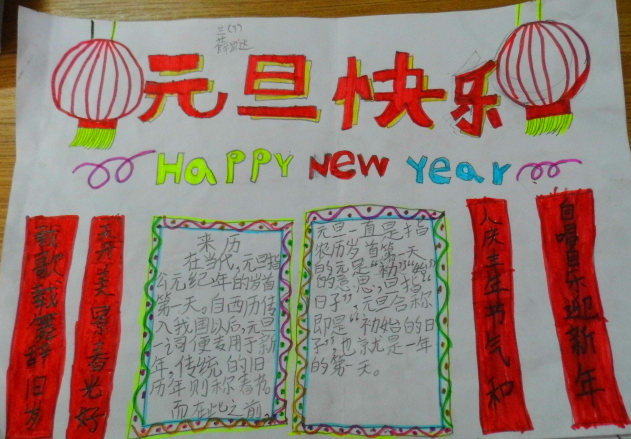 元旦快乐
HAPPY NEW YeaR
来历
在当代,元旦指
公元纪年的岁首
第一天。自西历传
入我国以后,元旦
一词便专用于新
年,传统的旧
历年则称春节。
而在此之前,
元旦一直是指
农历岁首第一天
的元是“初”“始”
的意思,旦指“
日子”,元旦合称
即是“初始的日
子”,也就是一年
的第一天。
载歌载舞辞旧岁
春光好
人庆丰年节气和
自唱自乐迎新年